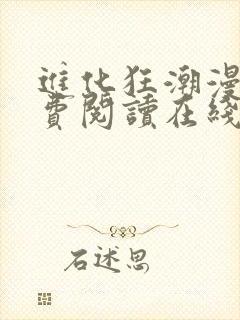 進化狂潮漫
費閱讀在綫
石述思